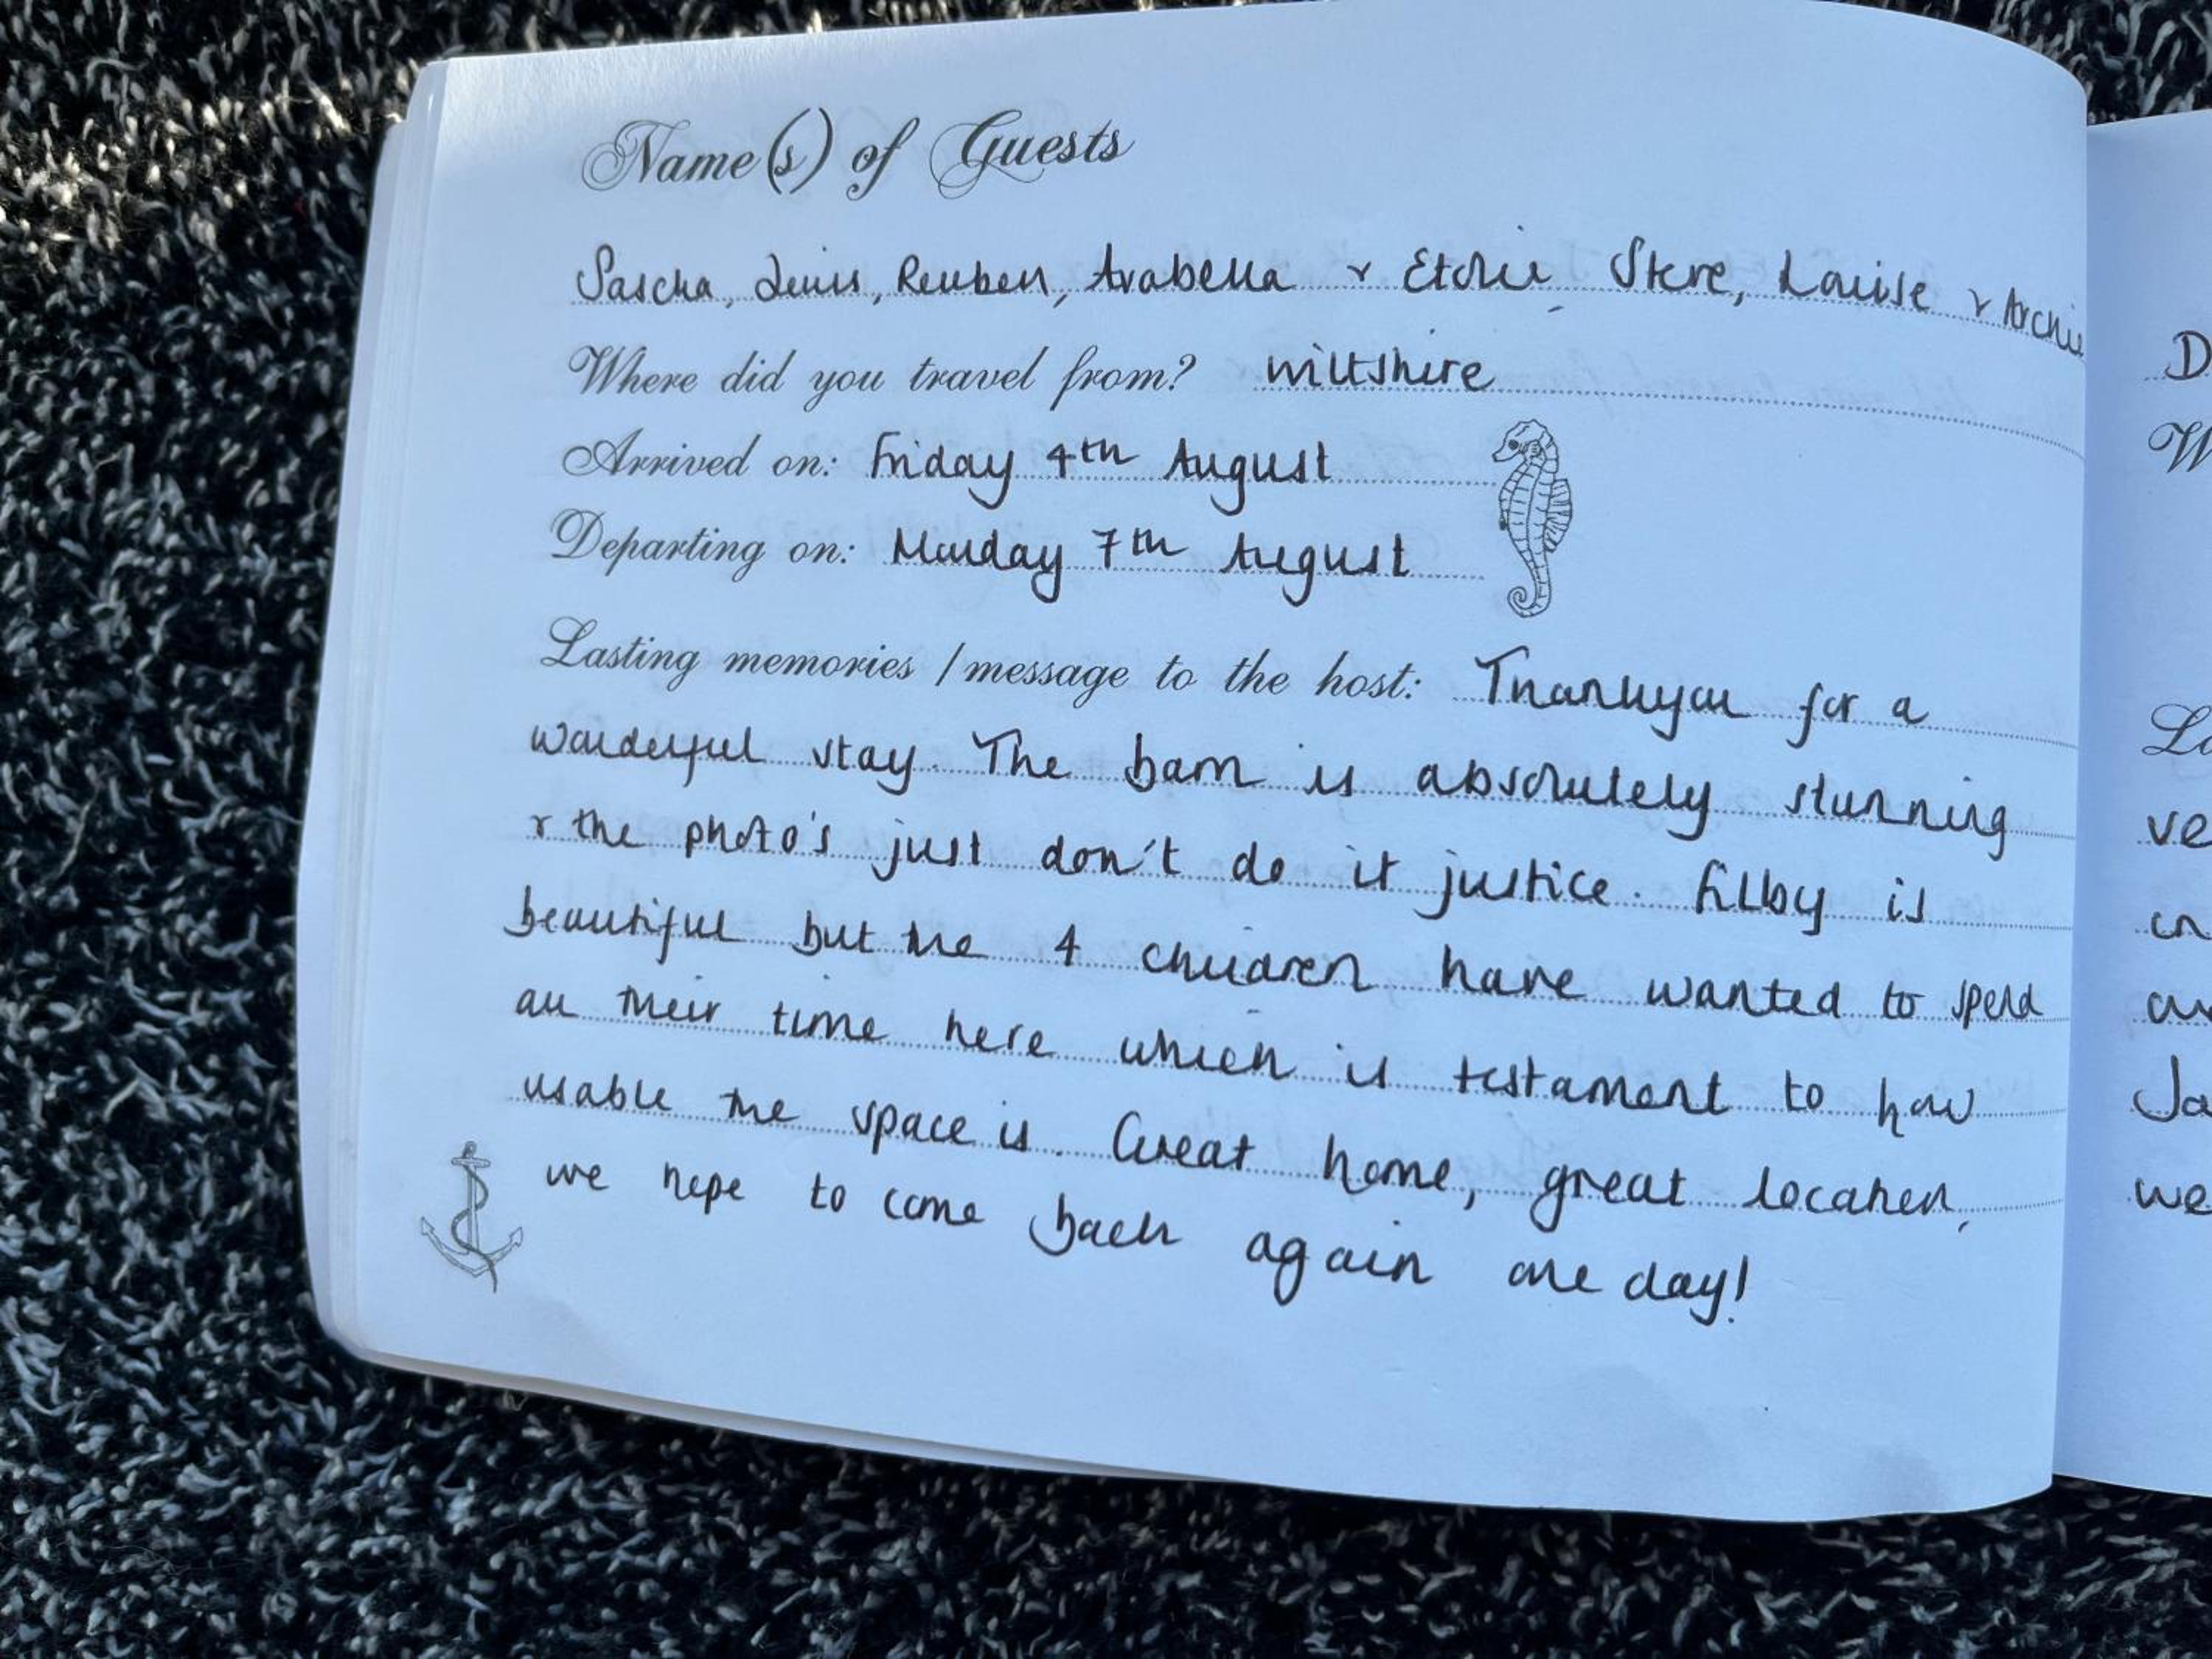 Name(s) of Guests
Sascha, Lewis, Reuben, Arabella & Etties Steve, Louise & Archie
Where did you travel from? Wiltshire
Arrived on: Friday 4th August
Departing on: Monday 7th August
Lasting memories / message to the host: Thankyou for a
wonderful stay. The barn is absolutely stunning
& the photo's just don't do it justice. Filby is
beautiful but the 4 children have wanted to spend
all their time here which is testament to how
usable the space is. Great home, great location,
we hope to come back again one day!
D
W
La
ve
in
Ja
we